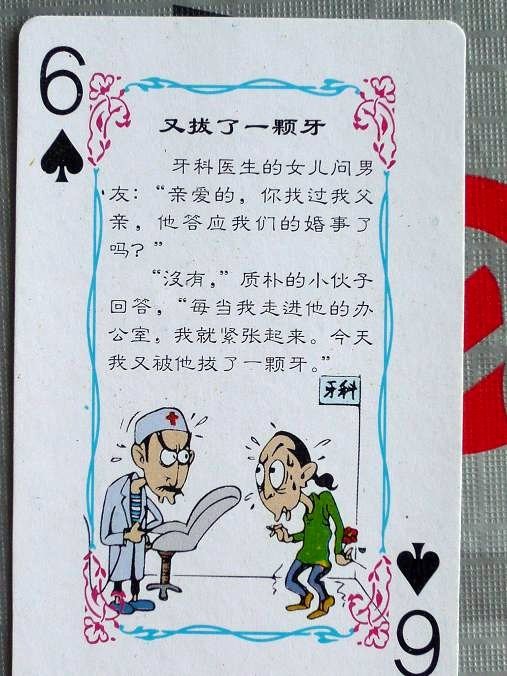 6
又拔了一颗牙
牙科医生的女儿问男
友：“亲爱的，你找过我父
亲，他答应我们的婚事了
吗？”
“没有，”质朴的小伙子
回答，“每当我走进他的办
公室，我就紧张起来。今天
我又被他拔了一颗牙。”
牙科
6